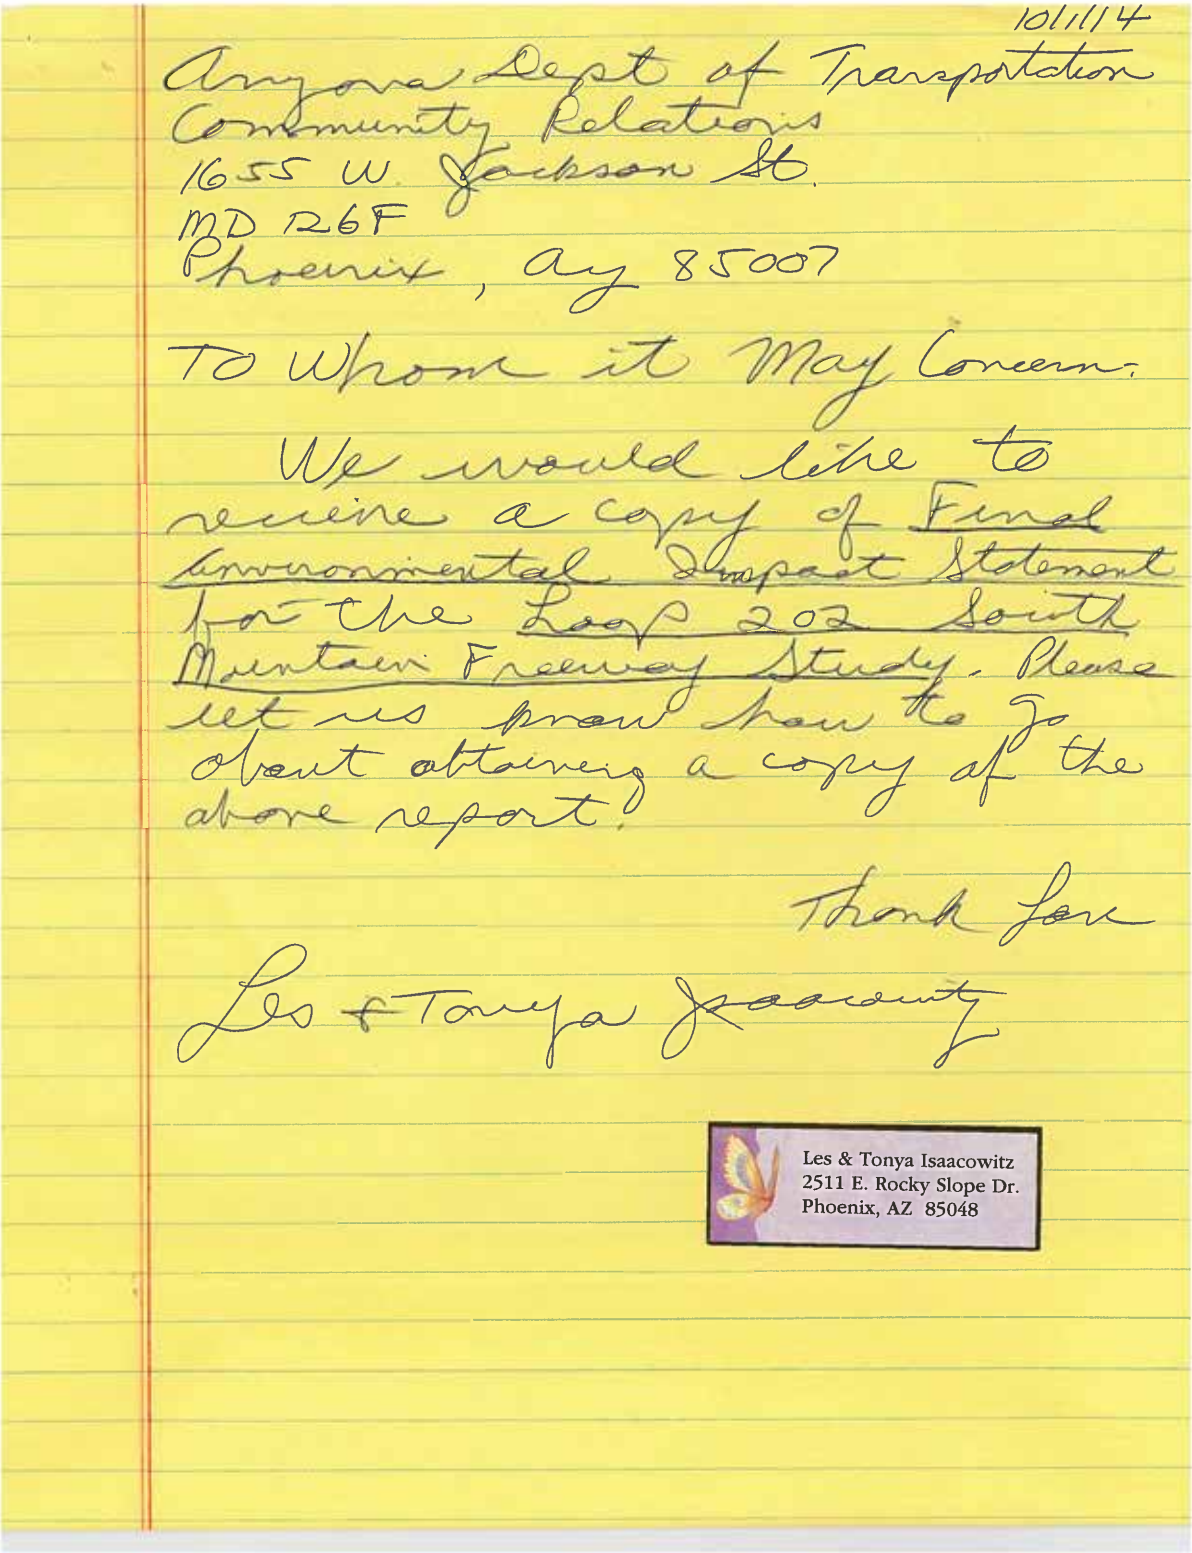 10/1/14
Arizona Dept of Transportation
Community Relations
1655 W. Jackson St.
MD 126F
Phoenix, Az 85007
To Whom it May Concern:
We would like to
receive a copy of Final
Environmental Impact Statement
for the Loop 202 South
Mountain Freeway Study. Please
let us know how to go
about obtaining a copy of the
above report.
Thank You
Les & Tonya Isaacowitz
Les & Tonya Isaacowitz
2511 E. Rocky Slope Dr.
Phoenix, AZ 85048